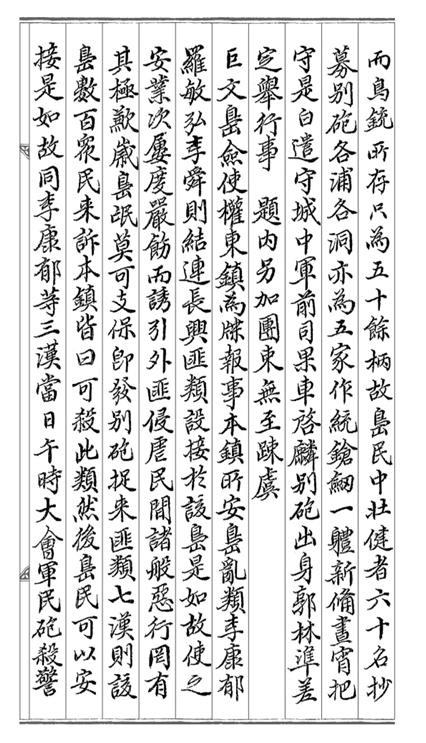 而鳥銃所存只爲五十餘柄故島民中壯健者六十名抄
募別砲各浦各洞亦爲五家作統鎗釰一軆新備晝宵把
守是白遣守城中軍前司果車啓麟別砲出身郭林準差
定擧行事 題內另加團束無至疎虞
巨文島僉使權東鎭爲牒報事本鎭所安島亂類李康郁
羅敏弘李舜則結連長興匪類設接於該島是如故使之
安業次屢度嚴飭而誘引外匪侵虐民間諸般惡行罔有
其極歉歲島氓莫可支保卽發別砲捉來匪類七漢則該
島數百眾民來訴本鎭皆曰可殺此類然後島民可以安
接是如故同李康郁等三漢當日午時大會軍民砲殺警